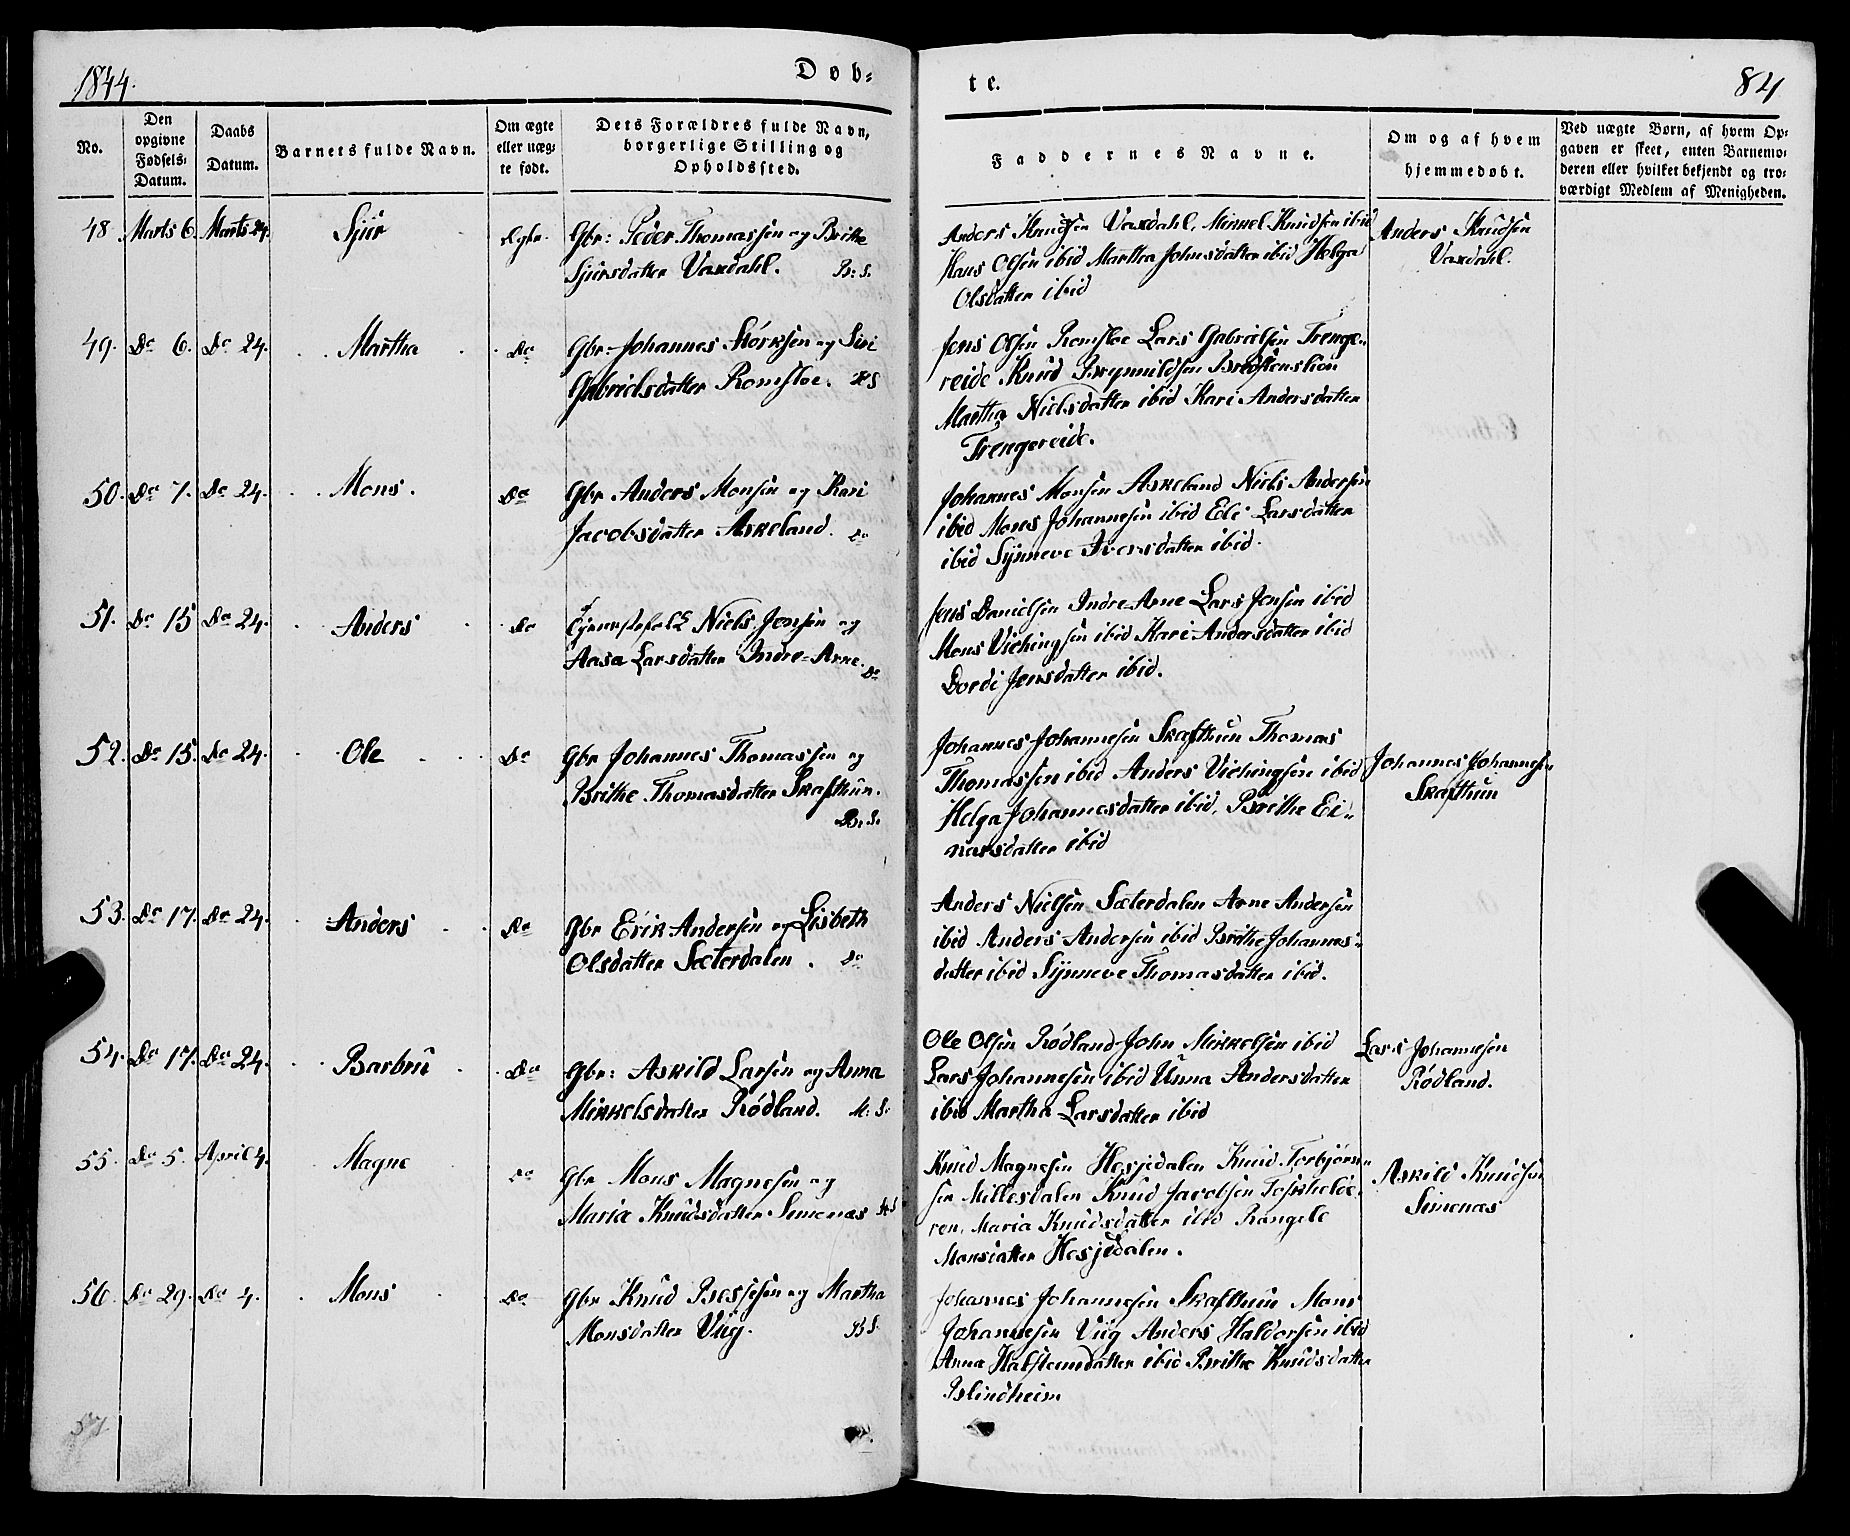 1844.
Døb-
te.
84
No.
Den opgivne Fødsels-Datum.
Daabs Datum.
Barnets fulde Navn.
Om ægte eller uæg-te født.
Dets Forældres fulde Navn, borgerlige Stilling og Opholdssted.
Faddernes Navne.
Om og af hvem hjemmedøbt.
Ved uægte Børn, af hvem Op-gaven er skeet, enten Barnemo-deren eller hvilket bekjendt og tro-værdigt Medlem af Menigheden.
48 Marts 6. Marts 24. Sjur Ægte.
Gbr: Peder Thomassen og Brithe
Sjursdatter Vaxdahl. B: S.
Anders Knudsen Vaxdahl, Mikkel Knudsen ibid
Hans Olsen ibid Martha Johnsdatter ibid Helga
Olsdatter ibid
Anders Knudsen
Vaxdahl.
49. Do 6. Do 24. Martha Do
Gbr: Johannes Størksen og Siri
Gabrielsdatter Romsloe. H S
Jens Olsen Romsloe Lars Gabrielsen Trenge-
reide Knud Brynnildsen
Martha Nielsdatter ibid Kari Andersdatter
Trengereide.
50. Do 7. Do 24. Mons. Do
Gbr Anders Monsen og Kari
Jacobsdatter Askeland. Do
Johannes Monsen Askeland Niels Andersen
ibid Mons Johannesen ibid Eli Larsdatter
ibid Synneve Iversdatter ibid.
51. Do 15 Do 24. Anders Do
Niels Jensen og
Aasa Larsdatter Indre-Arne. Do
Jens Danielsen Indre-Arne Lars Jensen ibid
Mons Vichingsen ibid Kari Andersdatter ibid
Dordi Jensdatter ibid.
52. Do 15. Do 24. Ole Do
Gbr Johannes Thomassen og
Brithe Thomasdatter Skafthun.
B. S.
Johannes Johannesen Skafthun Thomas
Thomassen ibid Anders Vichingsen ibid
Helga Johannesdatter ibid, Brithe Ei-
narsdatter ibid
Johannes Johannesen
Skafthun
53. Do 17. Do 24. Anders Do
Gbr Erik Andersen og Lisbeth
Olsdatter Sæterdalen. Do
Anders Nielsen Sæterdalen Arne Andersen
ibid Anders Andersen ibid Brithe Johannes-
datter ibid Synneve Thomasdatter ibid.
54. Do 17. Do 24. Barbru Do
Gbr: Askild Larsen og Anna
Mikkelsdatter Rødland. H: S.
Ole Olsen Rødland John Mikkelsen ibid
Lars Johannesen ibid Unna Andersdatter
ibid Martha Larsdatter ibid
Lars Johannesen
Rødland.
55. Do 5. April 4. Magne Do
Gbr Mons Magnesen og
Maria Knudsdatter Simenæs H S
Knud Magnesen Hesjedalen Knud Torbjørn-
sen Millesdalen Knud Jacobsen
ren, Maria Knudsdatter ibid Rangele
Monsdatter Hesjedalen.
Askild Knudsen
Simenæs
56. Do 29. Do 4. Mons Do
Gbr Knud Bessesen og Martha
Monsdatter Viig. B S.
Johannes Johannesen Skafthun Mons
Johannesen Viig Anders Haldorsen ibid
Anna Halsteinsdatter ibid Brithe Knudsdatter
Blindheim
57